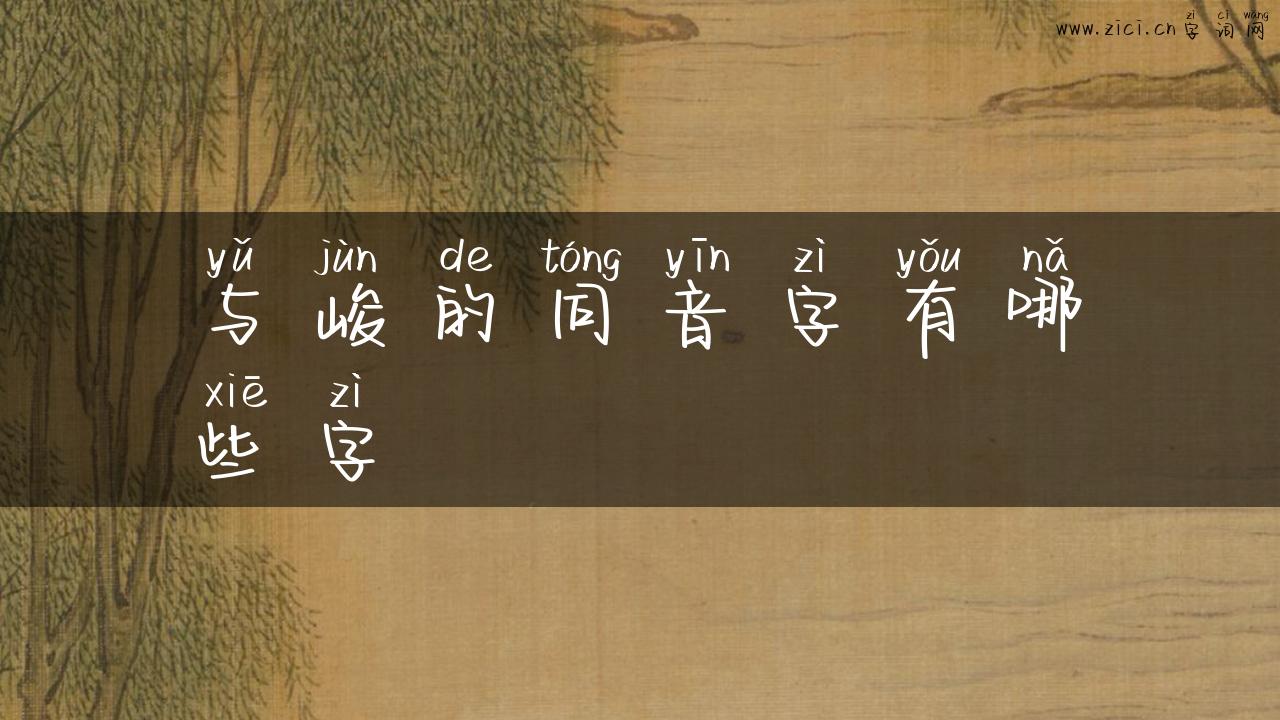 zì cí wǎng
www.zici.cn字词网
yǔ jùn de tóng yīn zì yǒu nǎ
与峻的同音字有哪
xiē zì
些字